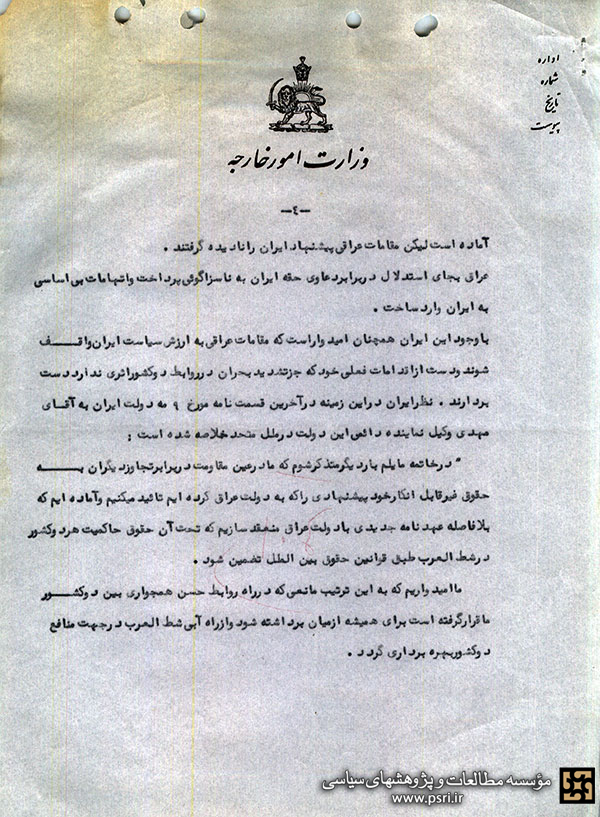 اداره
شماره
تاریخ
پیوست
وزارت امور خارجه
-۴-
آماده است لیکن مقامات عراقی پیشنهاد ایران را نادیده گرفتند .
عراق بجای استدلال در برابر دعاوی حقه ایران به ناسزاگوئی پرداخت و اتهامات بی اساسی
به ایران وارد ساخت .
با وجود این ایران همچنان امیدوار است که مقامات عراقی به ارزش سیاست ایران واقف
شوند و دست از اقدامات فعلی خود که جز تشدید بحران در روابط دو کشور اثری ندارد دست
بردارند . نظر ایران در این زمینه در آخرین قسمت نامه مورخ ۹ مه دولت ایران به آقای
مهدی وکیل نماینده دائمی این دولت در ملل متحد خلاصه شده است :
" در خاتمه مایلم بار دیگر متذکر شوم که ما در عین مقاومت در برابر تجاوز دیگران به
حقوق غیر قابل انکار خود پیشنهادی را که به دولت عراق کرده ایم تائید میکنیم و آماده ایم که
بلافاصله عهد نامه جدیدی با دولت عراق منعقد سازیم که تحت آن حقوق حاکمیت هر دو کشور
در شط العرب طبق قوانین حقوق بین الملل تضمین شود .
ما امیدواریم که به این ترتیب مانعی که در راه روابط حسن همجواری بین دو کشور
ما قرار گرفته است برای همیشه از میان برداشته شود و از راه آبی شط العرب در جهت منافع
دو کشور بهره برداری گردد .
مؤسسه مطالعات و پژوهشهای سیاسی
www.psri.ir